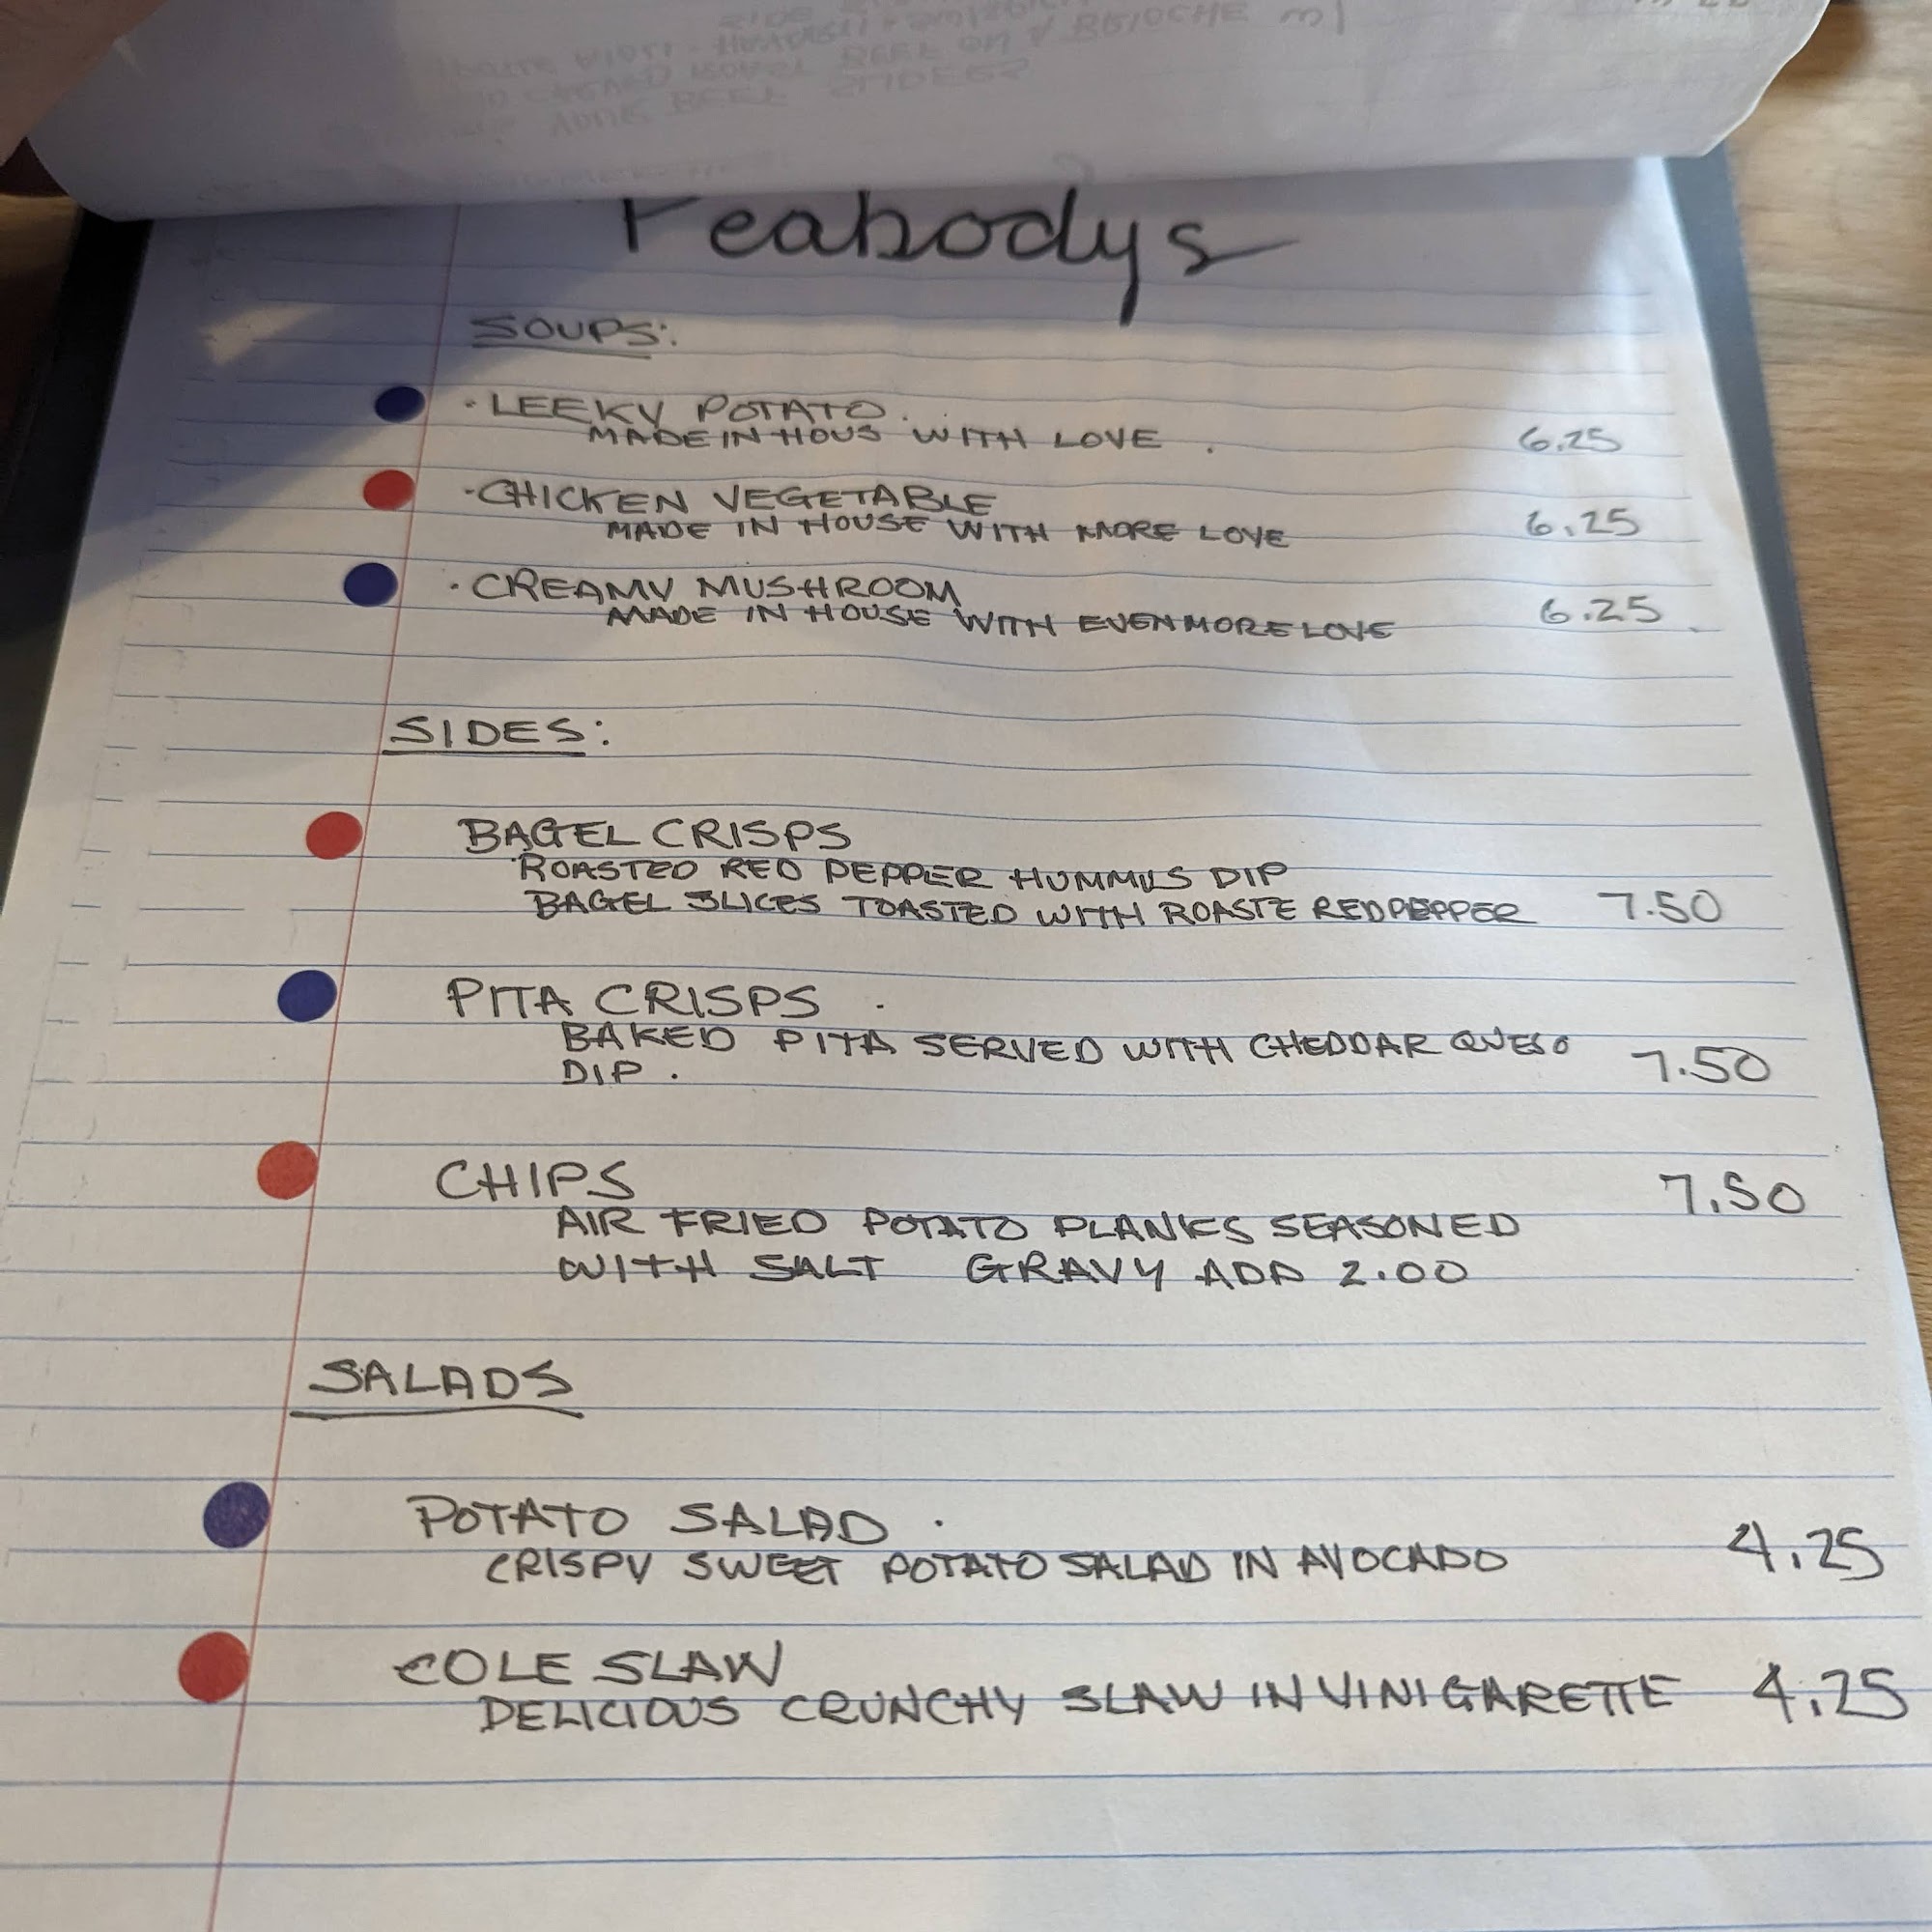 BRIOCHE
BEEF SLIDERS
Peabodys
SOUPS:
· LEEKY POTATO.
MADE IN HOUS WITH LOVE . 6.25
· CHICKEN VEGETABLE
MADE IN HOUSE WITH MORE LOVE 6.25
· CREAMY MUSHROOM
MADE IN HOUSE WITH EVEN MORE LOVE 6.25
SIDES:
BAGEL CRISPS
ROASTED RED PEPPER HUMMUS DIP
BAGEL SLICES TOASTED WITH ROASTE RED PEPPER 7.50
PITA CRISPS .
BAKED PITA SERVED WITH CHEDDAR QUESO
DIP . 7.50
CHIPS 7.50
AIR FRIED POTATO PLANKS SEASONED
WITH SALT GRAVY ADD 2.00
SALADS
POTATO SALAD .
CRISPY SWEET POTATO SALAD IN AVOCADO 4.25
COLE SLAW
DELICIOUS CRUNCHY SLAW IN VINIGARETTE 4.25